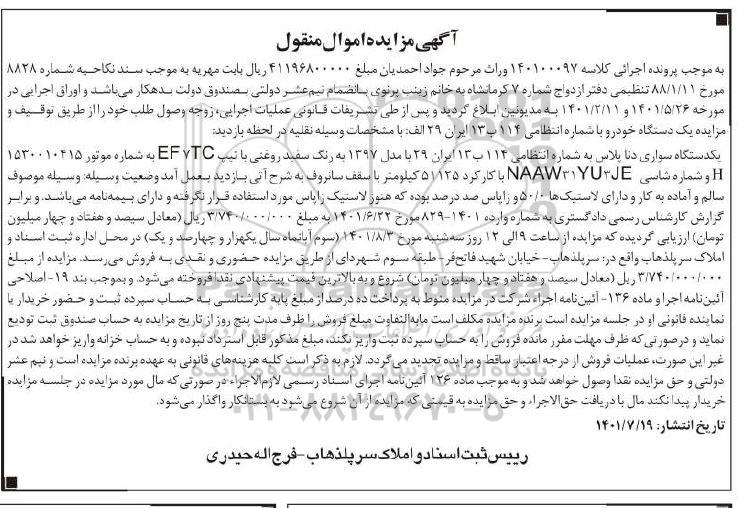 آگهی مزایده اموال منقول
به موجب پرونده اجرائی کلاسه ۱۴۰۱۰۰۰۹۷ وراث مرحوم جواد احمدیان مبلغ ۴۱۱۹۶۸۰۰۰۰۰ ریال بابت مهریه به موجب سند نکاحیه شماره ۸۸۲۸
مورخ ۸۸/۱/۱۱ تنظیمی دفتر ازدواج شماره ۷ کرمانشاه به خانم زینب پرنوی بانضمام نیم‌عشر دولتی بصندوق دولت بدهکار می‌باشد و اوراق اجرایی در
مورخه ۱۴۰۱/۵/۲۶ و ۱۴۰۱/۲/۱۱ به مدیونین ابلاغ گردید و پس از طی تشریفات قانونی عملیات اجرایی، زوجه وصول طلب خود را از طریق توقیف و
مزایده یک دستگاه خودرو با شماره انتظامی ۱۱۴ ب ۱۳ ایران ۲۹ الف: با مشخصات وسیله نقلیه در لحظه بازدید:
یکدستگاه سواری دنا پلاس به شماره انتظامی ۱۱۴ ب ۱۳ ایران ۲۹ با مدل ۱۳۹۷ به رنگ سفید روغنی با تیپ EF۷TC به شماره موتور ۱۵۳۰۰۱۰۴۱۵
H و شماره شاسی NAAW۳۱YU۳JE با کارکرد ۵۱۱۲۵ کیلومتر با سقف سانروف به شرح آتی بازدید بعمل آمد وضعیت وسیله: وسیله موصوف
سالم و آماده به کار و دارای لاستیک‌ها ۵۰٪ و زاپاس صد درصد بوده که هنوز لاستیک زاپاس مورد استفاده قرار نگرفته و دارای بیمه‌نامه می‌باشد. و برابر
گزارش کارشناس رسمی دادگستری به شماره وارده ۱۴۰۱-۸۲۹ مورخ ۱۴۰۱/۶/۲۲ به مبلغ ۳/۷۴۰/۰۰۰/۰۰۰ ریال (معادل سیصد و هفتاد و چهار میلیون
تومان) ارزیابی گردیده که مزایده از ساعت ۹ الی ۱۲ روز سه‌شنبه مورخ ۱۴۰۱/۸/۳ (سوم آبانماه سال یکهزار و چهارصد و یک) در محل اداره ثبت اسناد و
املاک سرپلذهاب واقع در: سرپلذهاب- خیابان شهید فاتح‌فر- طبقه سوم شهرداری از طریق مزایده حضوری و نقدی به فروش می‌رسد. مزایده از مبلغ
۳/۷۴۰/۰۰۰/۰۰۰ ریال (معادل سیصد و هفتاد و چهار میلیون تومان) شروع و به بالاترین قیمت پیشنهادی نقدا فروخته می‌شود. و بموجب بند ۱۹- اصلاحی
آئین‌نامه اجرا و ماده ۱۳۶- آئین‌نامه اجراء شرکت در مزایده منوط به پرداخت ده درصد از مبلغ پایه کارشناسی به حساب سپرده ثبت و حضور خریدار یا
نماینده قانونی او در جلسه مزایده است برنده مزایده مکلف است مابه‌التفاوت مبلغ فروش را ظرف مدت پنج روز از تاریخ مزایده به حساب صندوق ثبت تودیع
نماید و در صورتی که ظرف مهلت مقرر مانده فروش را به حساب سپرده ثبت واریز نکند، مبلغ مذکور قابل استرداد نبوده و به حساب خزانه واریز خواهد شد در
غیر این صورت، عملیات فروش از درجه اعتبار ساقط و مزایده تجدید می‌گردد. لازم به ذکر است کلیه هزینه‌های قانونی به عهده برنده مزایده است و نیم عشر
دولتی و حق مزایده نقدا وصول خواهد شد و به موجب ماده ۱۲۶ آئین‌نامه اجرای اسناد رسمی لازم‌الاجراء در صورتی که مال مورد مزایده در جلسه مزایده
خریدار پیدا نکند مال با دریافت حق‌الاجراء و حق مزایده به قیمتی که مزایده از آن شروع می‌شود به بستانکار واگذار می‌شود.
تاریخ انتشار: ۱۴۰۱/۷/۱۹
رییس ثبت اسناد و املاک سرپلذهاب- فرج اله حیدری